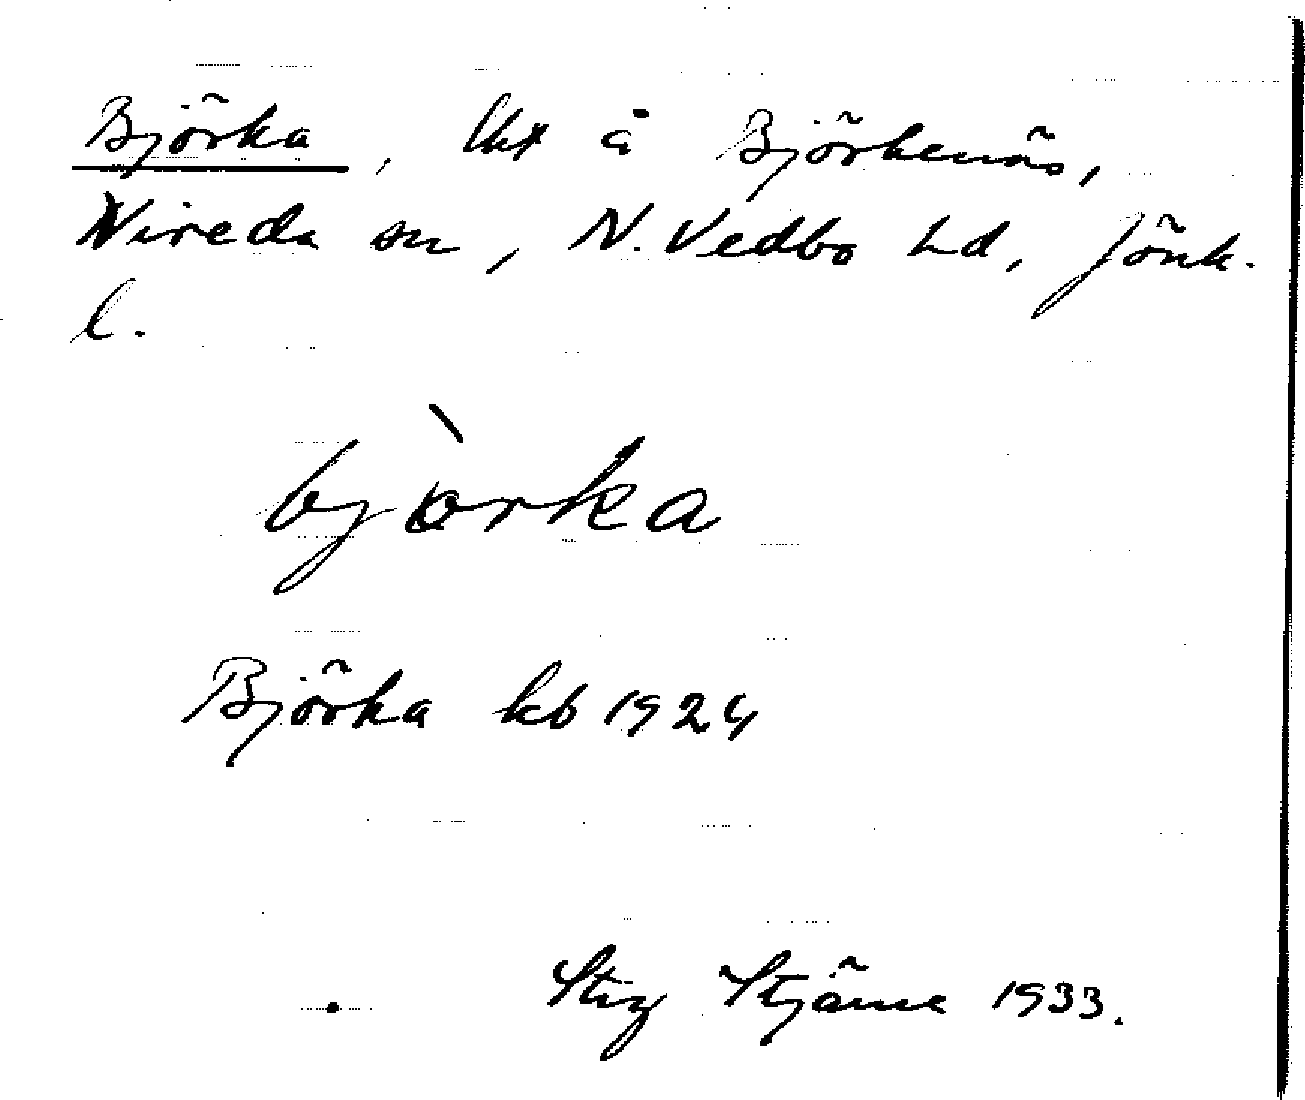 Björka, lht å Björkenäs,
Nireda sn, N. Vedbo hd, Jönk.
l.
bjòrka
Björka kb 1924
Stig Stjärne 1933.